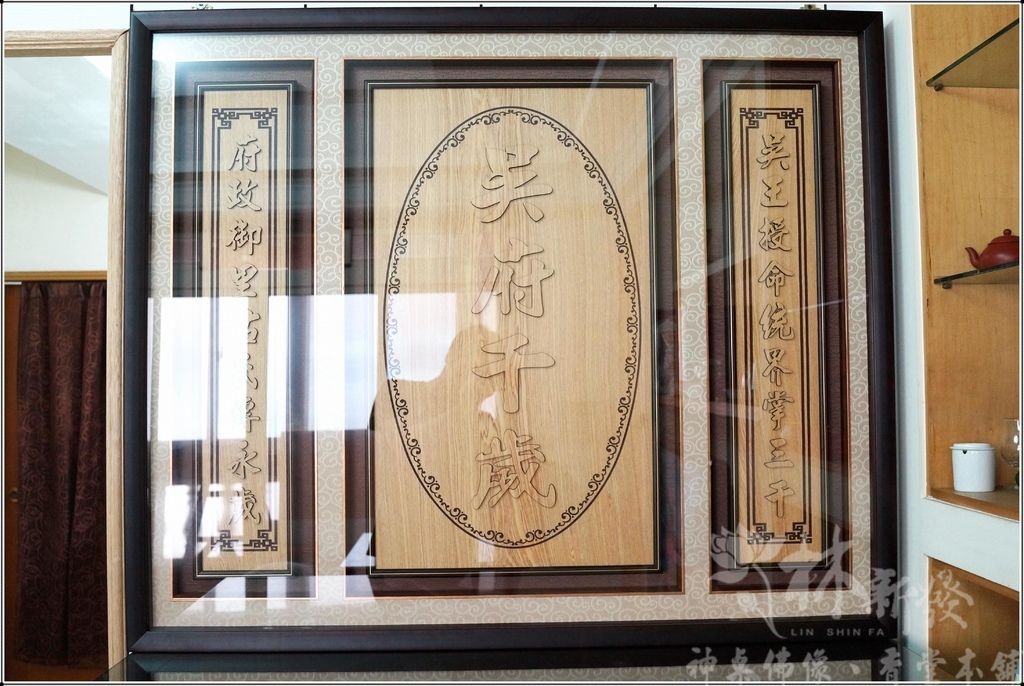 吳王授命統界掌三千
吳府千歲
府政御里
永歲
林新發
LIN SHIN FA
神桌佛像、香堂本舖